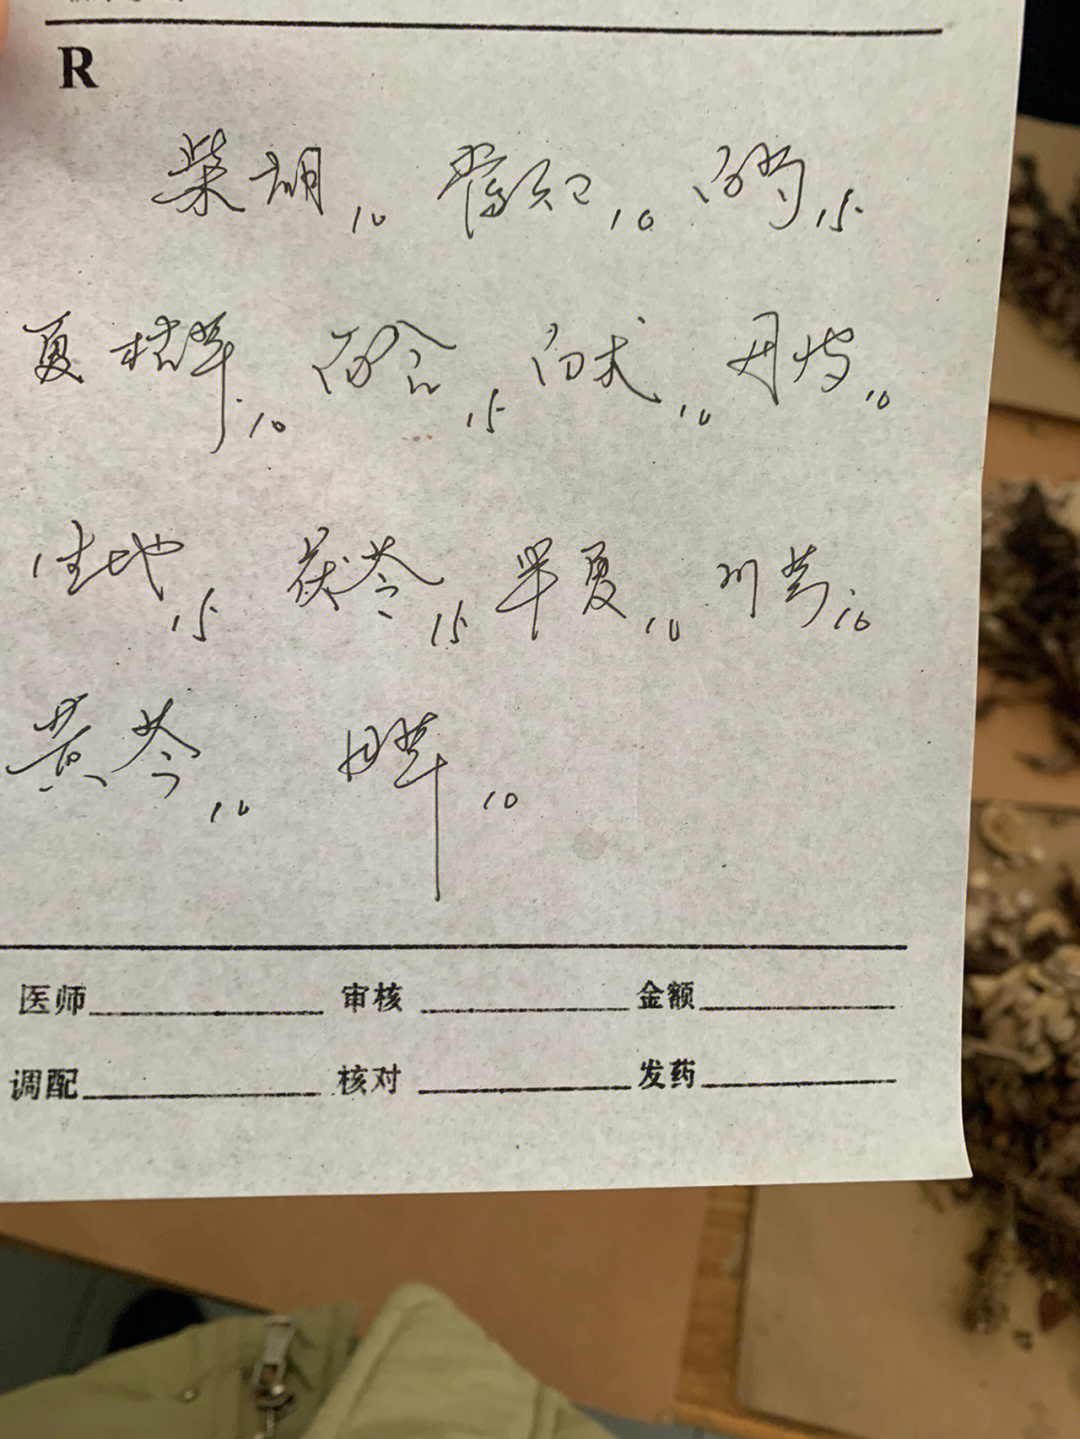 R
柴胡10 香附10 白芍15
夏枯草10 百合15 白术10 丹皮10
生地15 茯苓15 半夏10 川芎10
黄芩10 甘草10
医师 审核 金额
调配 核对 发药